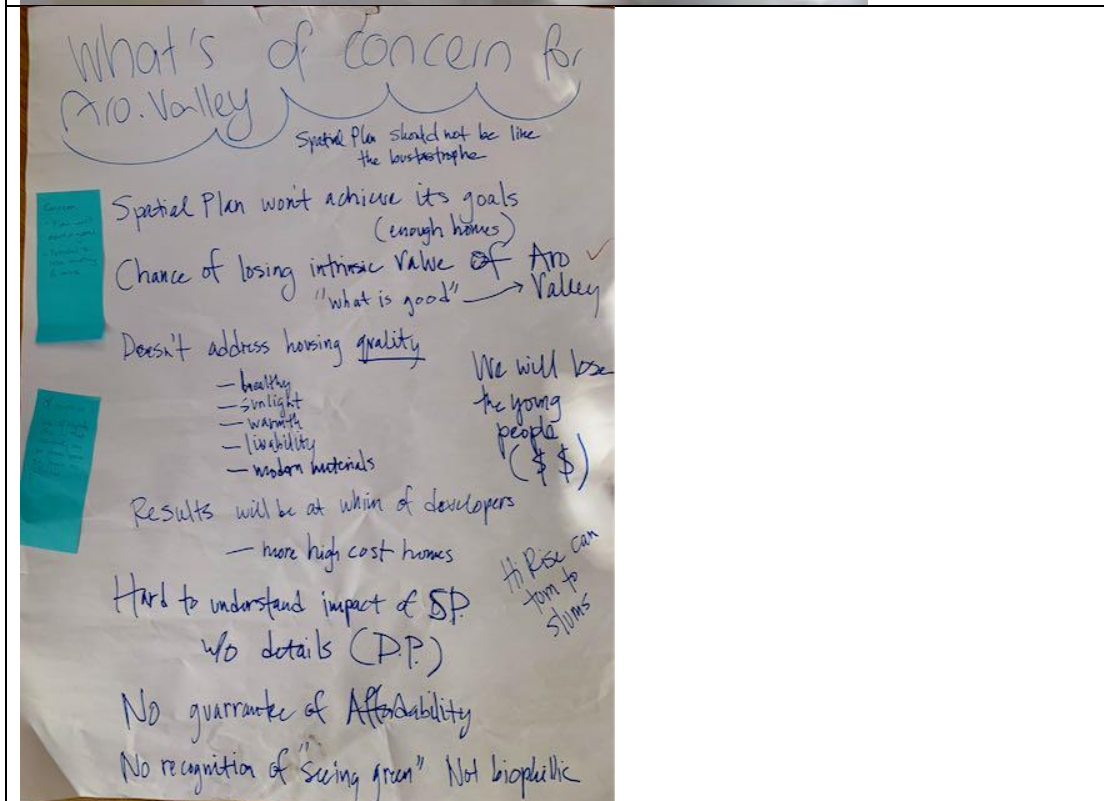 What's of concern for
Aro. Valley
Spatial Plan should not be like
the bustastrophe
Spatial Plan won't achieve its goals
(enough homes)
Chance of losing intrinsic value of Aro
"what is good" Valley
Doesn't address housing quality
— healthy
— sunlight
— warmth
— livability
— modern materials
We will lose
the young
people
($$)
Results will be at whim of developers
— more high cost homes
Hi Rise can
turn to
slums
Hard to understand impact of S.P.
w/o details (D.P.)
No guarrantee of Affordability
No recognition of "seeing green" Not biophillic
Concern